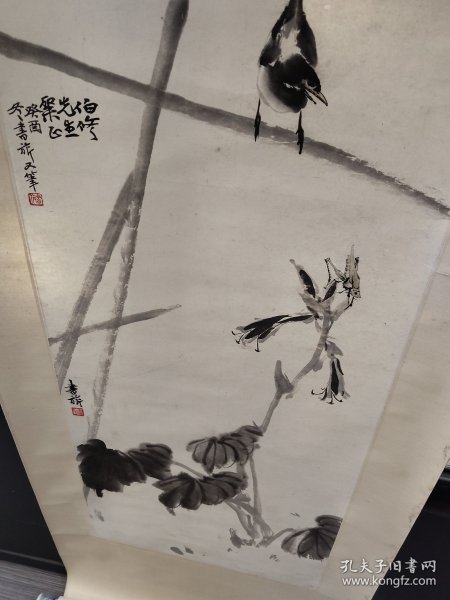 伯修
先生
粲正
癸酉
冬書旂又筆
書旂
孔夫子旧书网
www.kongfz.com